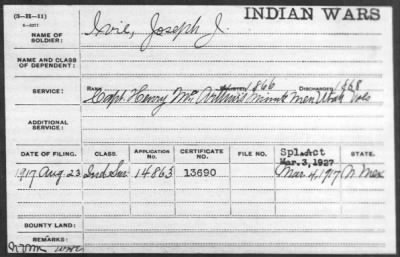 (3-H-11)
6-2277
INDIAN WARS
NAME OF SOLDIER:
Ivie, Joseph J.
NAME AND CLASS OF DEPENDENT:
SERVICE:
RANK
ENLISTED 1866
DISCHARGED 1868
Capt. Henry Mc Arthur's Minute Men Utah Vols
ADDITIONAL SERVICE:
DATE OF FILING. CLASS. APPLICATION No. CERTIFICATE No. FILE NO. Spl. Act STATE.
Mar. 3, 1927
1917 Aug. 23 Ind Sur 14863 13690 Mar. 4, 1917 N. Mex
BOUNTY LAND:
REMARKS: